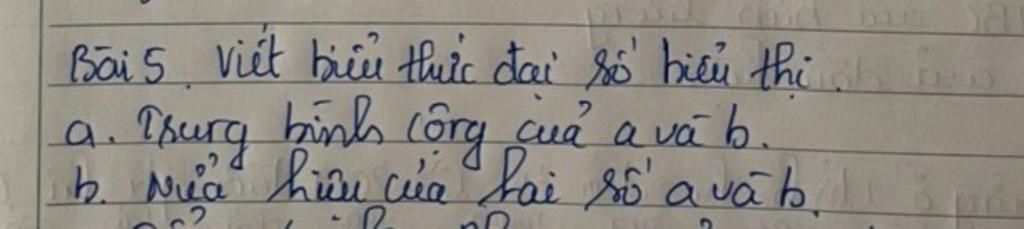 Bài 5. Viết biểu thức đại số biểu thị.
a. Trung bình cộng của a và b.
b. Nửa hiệu của hai số a và b.